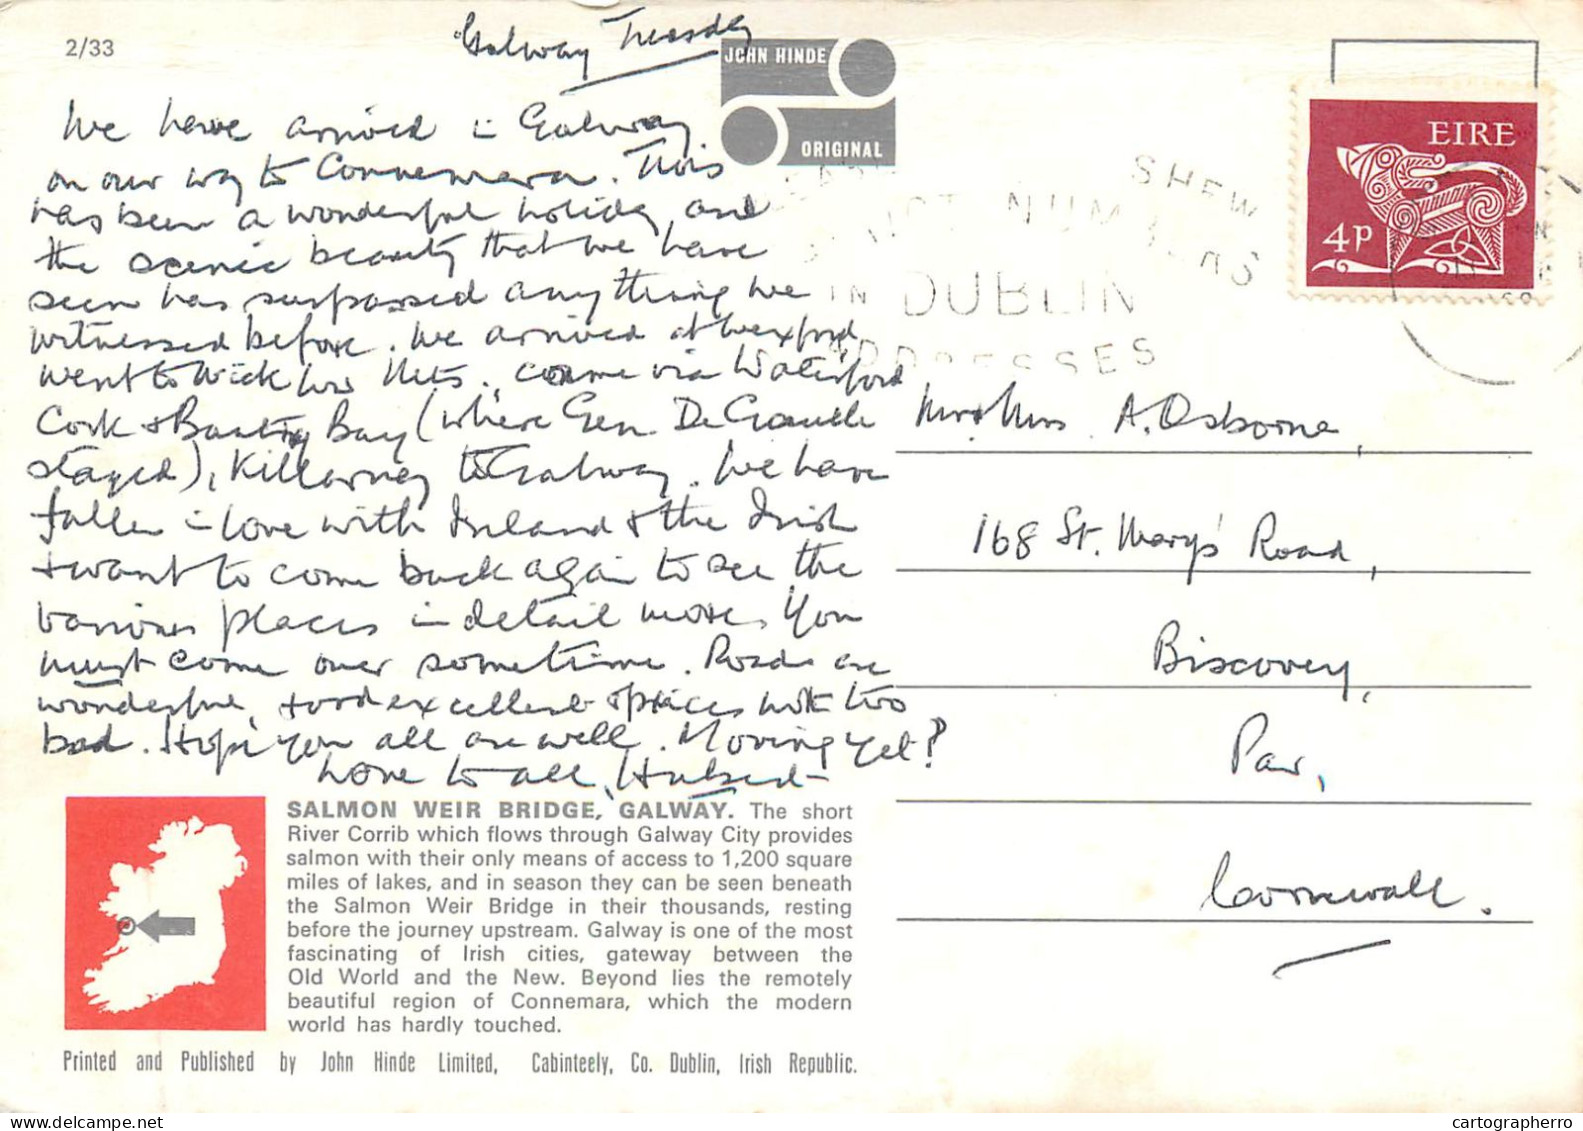 2/33
Galway Tuesday
JOHN HINDE
ORIGINAL
We have arrived in Galway
on our way to Connemara. This
has been a wonderful holiday and
the scenic beauty that we have
seen has surpassed anything we
witnessed before. We arrived at Wexford
went to Wicklow Mts. came via Waterford
Cork & Bantry Bay (where Gen De Gaulle
stayed), Killarney to Galway. We have
fallen in love with Ireland & the Irish
& want to come back again to see the
various places in detail more. You
must come over sometime. Roads are
wonderful, food excellent & prices not too
bad. Hope you all are well. Moving yet?
Love to all,
EIRE
4p
SHEW
DISTRICT NUMBERS
IN DUBLIN
ADDRESSES
Mr & Mrs. A. Osborne,
168 St. Mary's Road,
Biscovey,
Par,
Cornwall.
SALMON WEIR BRIDGE, GALWAY. The short
River Corrib which flows through Galway City provides
salmon with their only means of access to 1,200 square
miles of lakes, and in season they can be seen beneath
the Salmon Weir Bridge in their thousands, resting
before the journey upstream. Galway is one of the most
fascinating of Irish cities, gateway between the
Old World and the New. Beyond lies the remotely
beautiful region of Connemara, which the modern
world has hardly touched.
Printed and Published by John Hinde Limited, Cabinteely, Co. Dublin, Irish Republic.
cartographerro